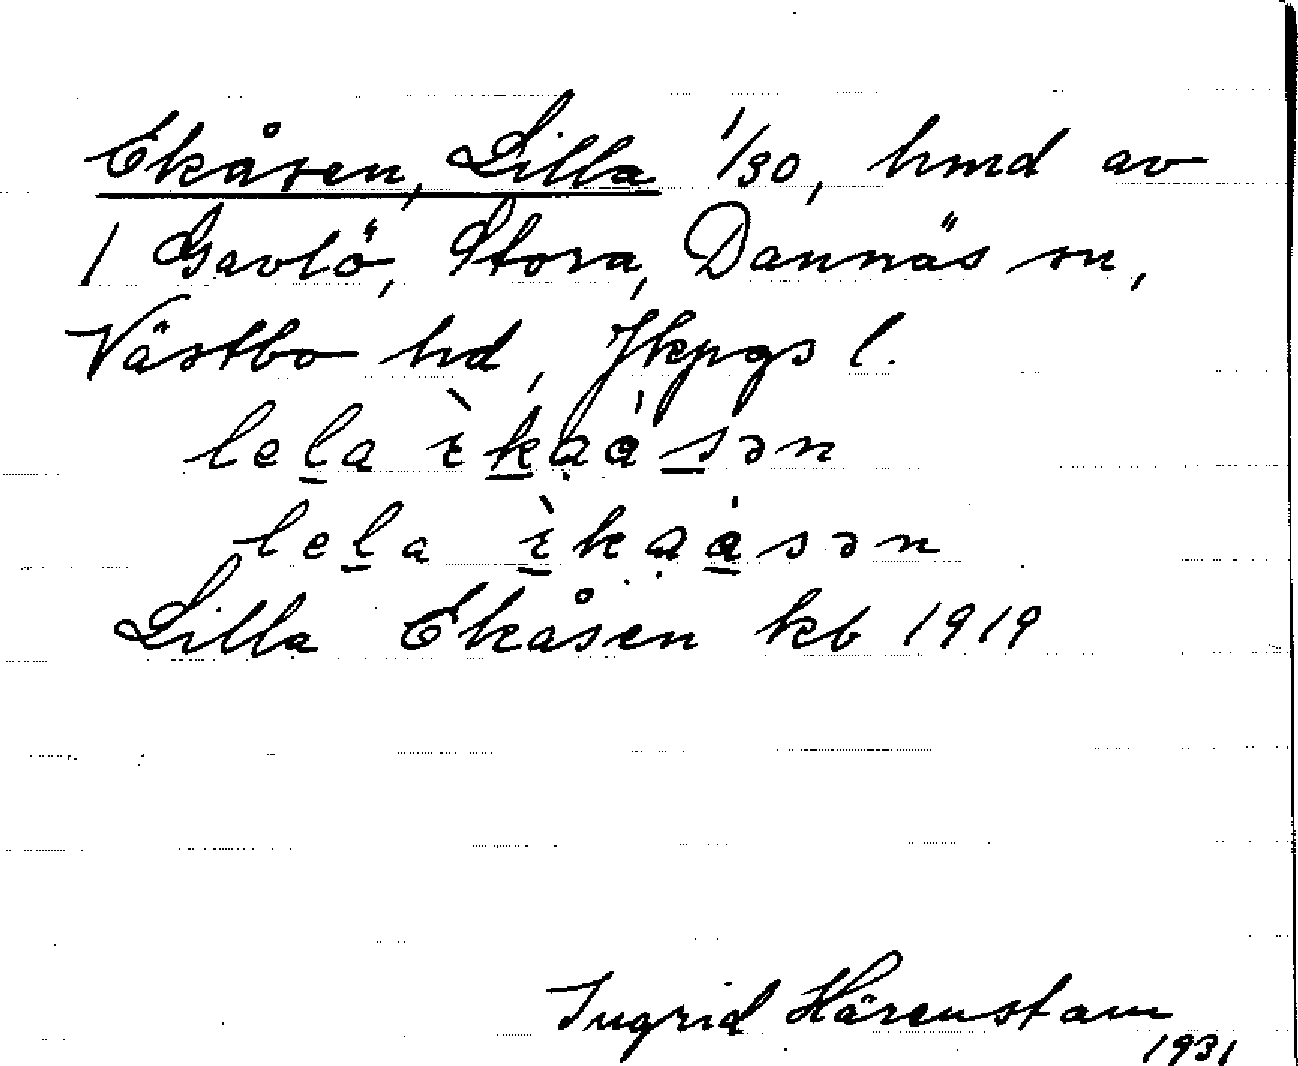 Ekåsen, Lilla 1/30, hmd av
1 Gavlö, Stora, Dannäs sn,
Västbo hd, Jkpgs l.
lela ìkaásən
lela ìkaásən
Lilla Ekåsen kb 1919
Ingrid Härenstam
1931